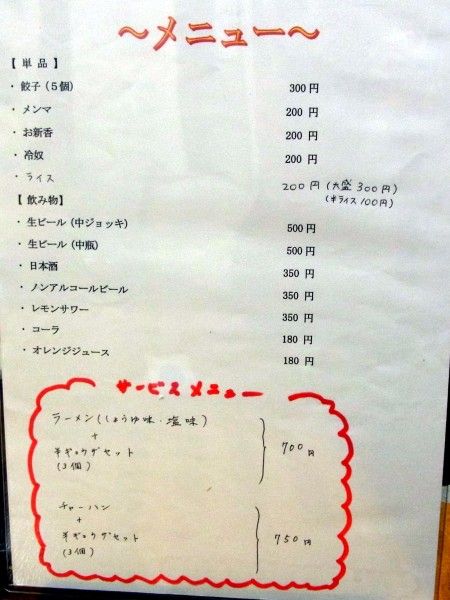 ～メニュー～
【単品】
・餃子（５個） 300 円
・メンマ 200 円
・お新香 200 円
・冷奴 200 円
・ライス 200 円 (大盛 300円)
(半ライス 100円)
【飲み物】
・生ビール（中ジョッキ） 500 円
・生ビール（中瓶） 500 円
・日本酒 350 円
・ノンアルコールビール 350 円
・レモンサワー 350 円
・コーラ 180 円
・オレンジジュース 180 円
サービスメニュー
ラーメン(しょうゆ味・塩味)
+
半ギョウザセット 700円
(3個)
チャーハン
+
半ギョウザセット 750円
(3個)